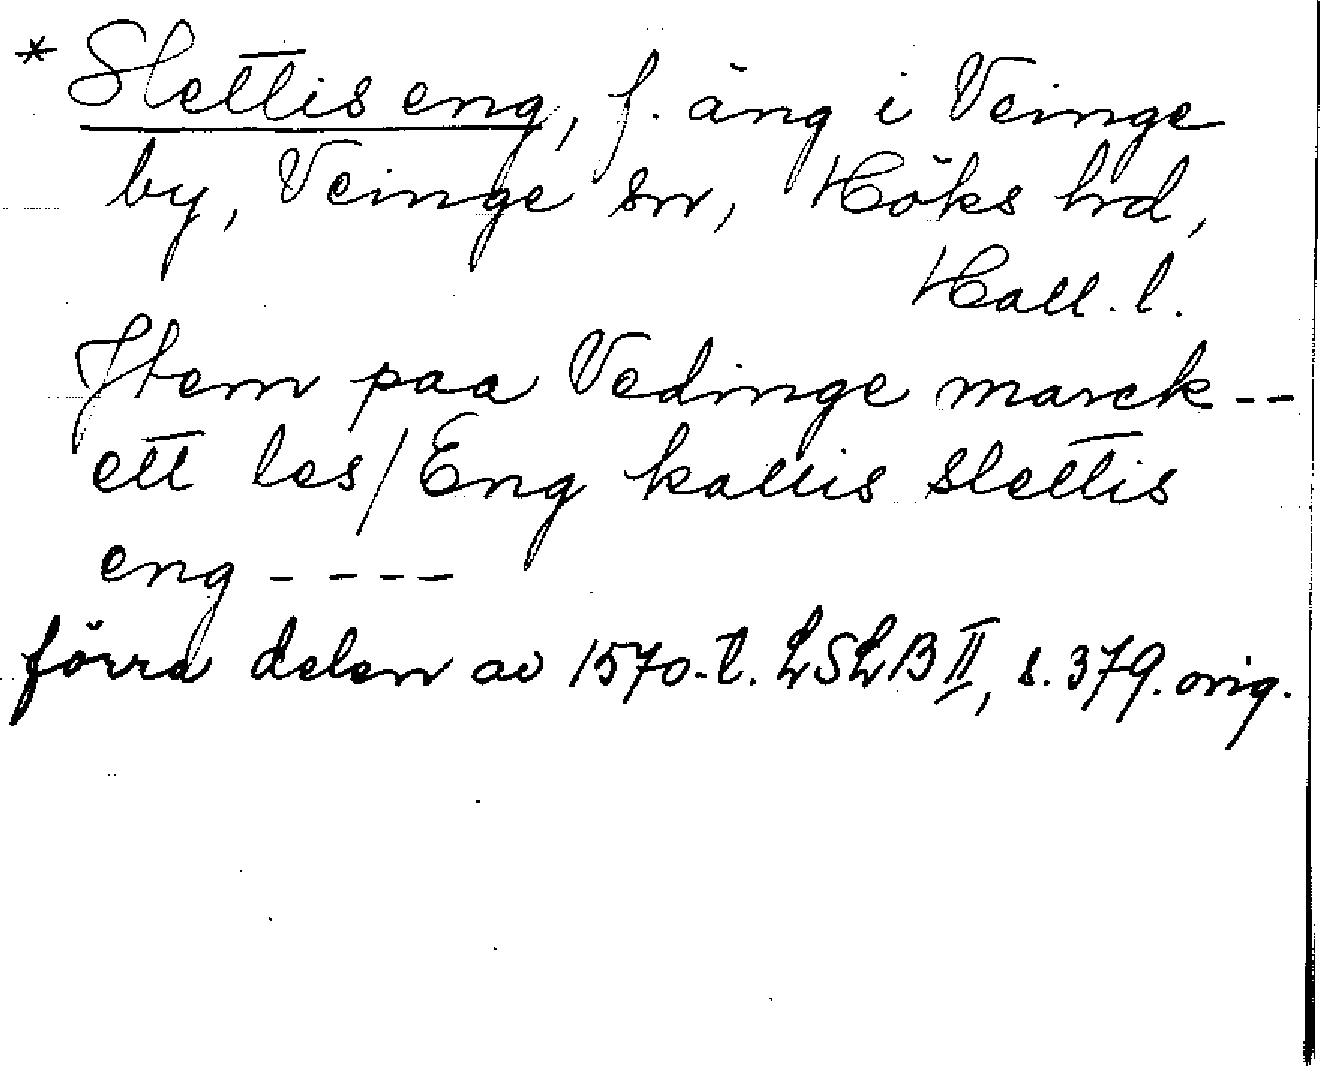 * Slettis eng, f. äng i Veinge
by, Veinge sn, Höks hrd,
Hall. l.
Jtem paa Vedinge marck --
ett les / Eng kallis slettis
eng - - - -
förra delen av 1570-t. LSLB II, s. 379. orig.